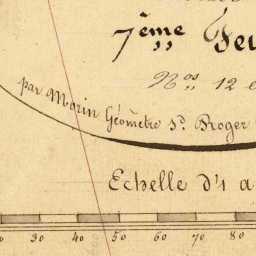 7ème
Nos 12 e
par Morin Géomètre Sd. Broger
Echelle d'1 a
30 40 50 60 70 80